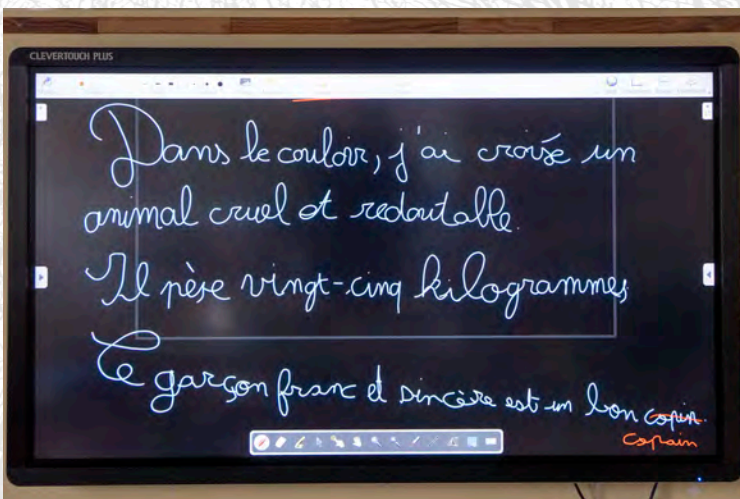 CLEVERTOUCH PLUS
Dans le couloir, j'ai croisé un
animal cruel et redoutable.
Il pèse vingt-cinq kilogrammes
Ce garçon franc et sincère est un bon copin.
copain